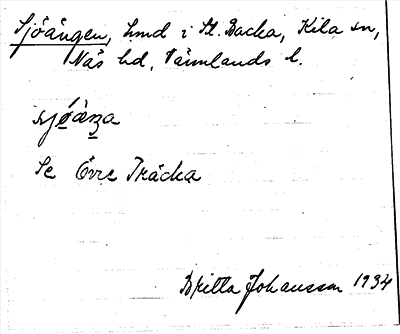 Sjöängen, hmd i St. Backa, Kila sn,
Näs hd, Värmlands l.
Se Övre Träcka
Britta Johansson 1934